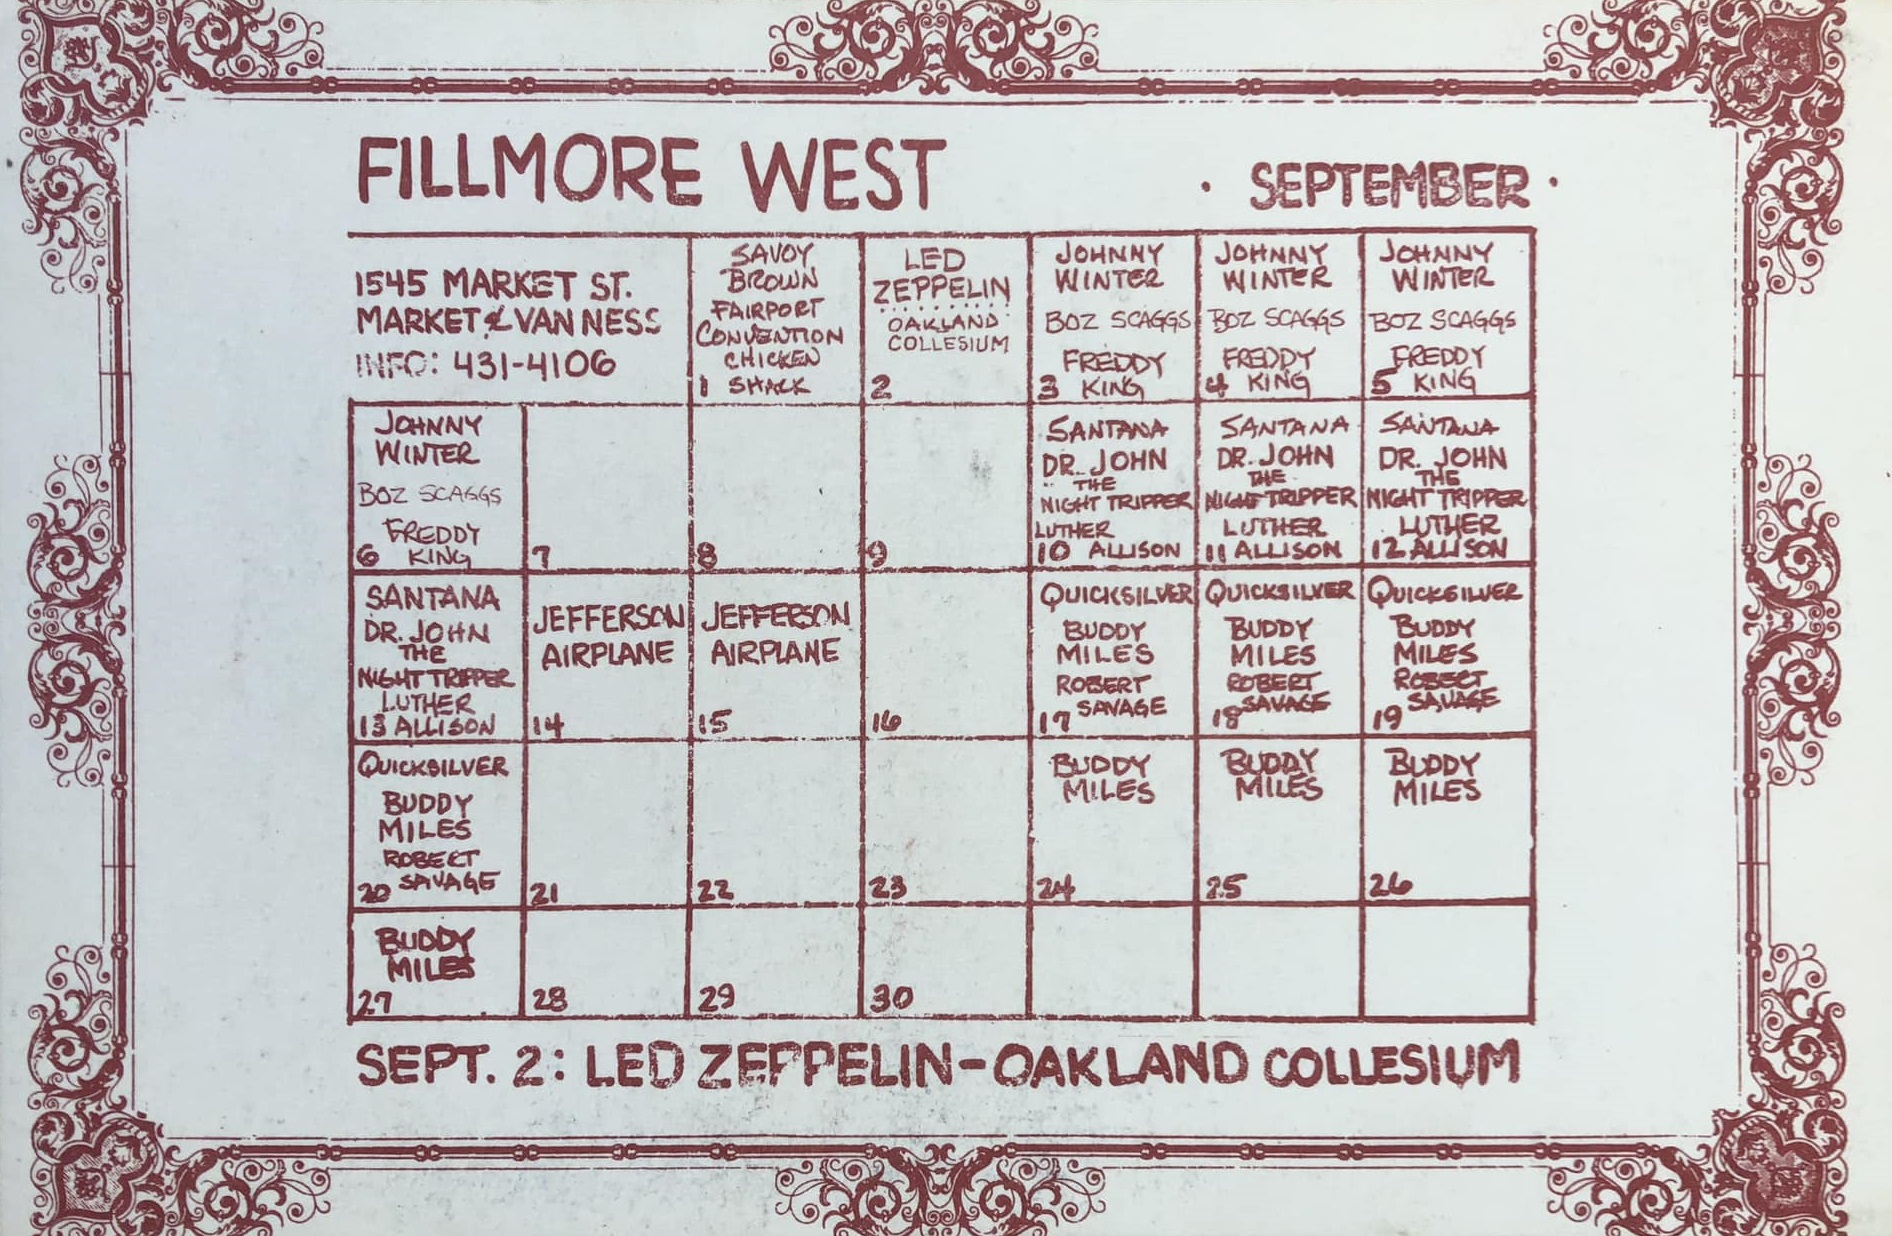 FILLMORE WEST
· SEPTEMBER ·
1545 MARKET ST.
MARKET & VAN NESS
INFO: 431-4106
SAVOY
BROWN
FAIRPORT
CONVENTION
CHICKEN
SHACK
1
LED
ZEPPELIN
OAKLAND
COLLESIUM
2
JOHNNY
WINTER
BOZ SCAGGS
FREDDY
3 KING
JOHNNY
WINTER
BOZ SCAGGS
FREDDY
4 KING
JOHNNY
WINTER
BOZ SCAGGS
FREDDY
5 KING
JOHNNY
WINTER
BOZ SCAGGS
FREDDY
6 KING
7
8
9
SANTANA
DR. JOHN
THE
NIGHT TRIPPER
LUTHER
10 ALLISON
SANTANA
DR. JOHN
THE
NIGHT TRIPPER
LUTHER
11 ALLISON
SANTANA
DR. JOHN
THE
NIGHT TRIPPER
LUTHER
12 ALLISON
SANTANA
DR. JOHN
THE
NIGHT TRIPPER
LUTHER
13 ALLISON
JEFFERSON
AIRPLANE
14
JEFFERSON
AIRPLANE
15
16
QUICKSILVER
BUDDY
MILES
ROBERT
17 SAVAGE
QUICKSILVER
BUDDY
MILES
ROBERT
18 SAVAGE
QUICKSILVER
BUDDY
MILES
ROBERT
19 SAVAGE
QUICKSILVER
BUDDY
MILES
ROBERT
20 SAVAGE
21
22
23
BUDDY
MILES
24
BUDDY
MILES
25
BUDDY
MILES
26
BUDDY
MILES
27
28
29
30
SEPT. 2: LED ZEPPELIN-OAKLAND COLLESIUM